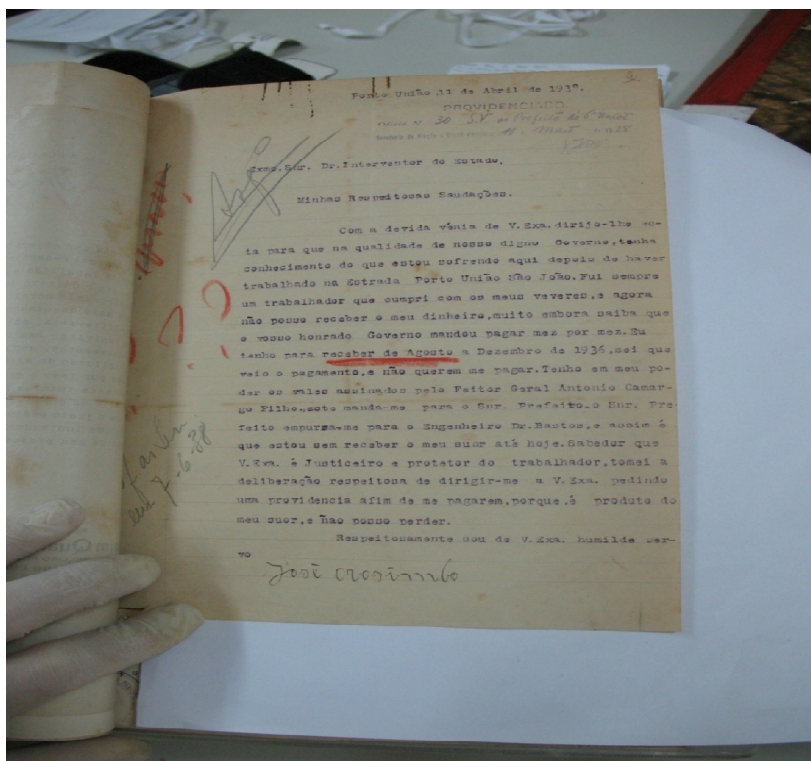 Porto União, 11 de Abril de 193
PROVIDENCIADO
Exmo. Snr. Dr. Interventor do Estado.
Minhas Respeitosas Saudações.
Com a devida vênia de V.Exa. dirijo-lhe es-
ta para que na qualidade de nosso digno Governo, tenha
conhecimento do que estou sofrendo aqui depois de haver
trabalhado na Estrada Porto União São João. Fui sempre
um trabalhador que cumpri com os meus veveres, e agora
não posso receber o meu dinheiro, muito embora saiba que
o vosso honrado Governo mandou pagar mez por mez. Eu
tenho para receber de Agosto a Dezembro de 1936, sei que
veio o pagamento, e não querem me pagar. Tenho em meu po-
der os vales assinados pelo Feitor Geral Antonio Camar-
go Filho, este manda-me para o Snr. Prefeito. o Snr. Pre-
feito empursa-me para o Engenheiro Dr. Bastos, e assim é
que estou sem receber o meu suor até hoje. Sabedor que
V.Exa. é Justiceiro e protetor do trabalhador, tomei a
deliberação respeitosa de dirigir-me a V.Exa. pedindo
uma providencia afim de me pagarem, porque, é produto do
meu suor, e não posso perder.
Respeitosamente sou de V.Exa. humilde ser-
vo
José
em 7-6-38